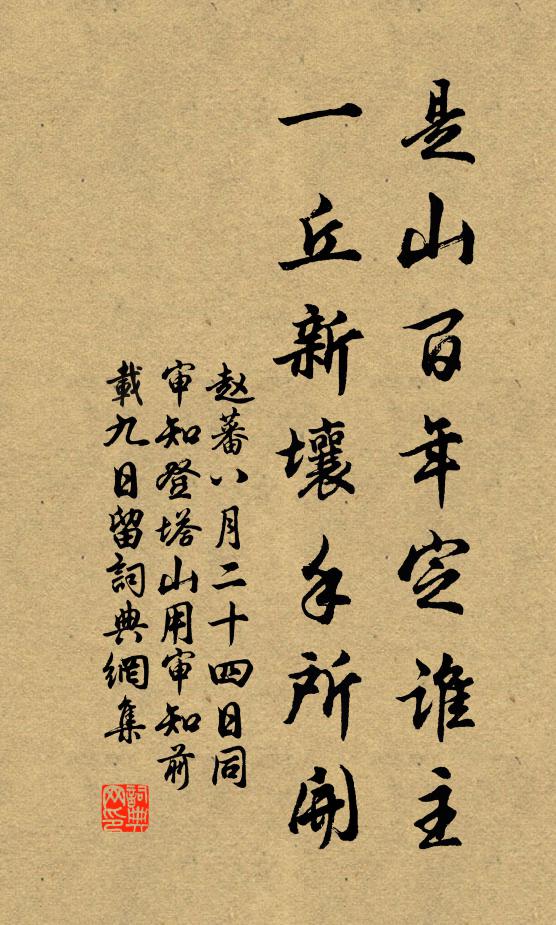 是山百年定谁主
一丘新壤手所開
赵蕃八月二十四日同
审知登塔山用审知前
載九日留詞典網集
詞典網印